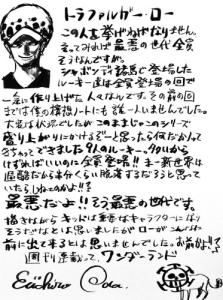 トラファルガー・ロー
この人も挙げねばなりません。
そうですねば最悪の世代全員
そうなんですが。
シャボンディ諸島で登場した
ルーキー達は全員登場の回で
一気に作り上げた人々なんです。その前の回
までは僕の構想ノートにも誰一人いませんでした。
大変な状況でしたがこのままじゃこのシリーズ
盛り上がりにかけるぞーと思ったら何だかんだ
できちゃってきました9人のルーキー。9人いるから
はすればいいのに全員登場!!まー新世界は
過酷だから半分くらい脱落するだろうし思って
いたら
最悪だよ!!そう最悪の世代です。
描きながらキッドは重要なキャラクターになり
そうだなとは思いましたがローがこんなにも
前に出て来るとは思いませんでした。お前かよ!!って
週刊連載って、ワンダーランド
Eiichiro Oda.